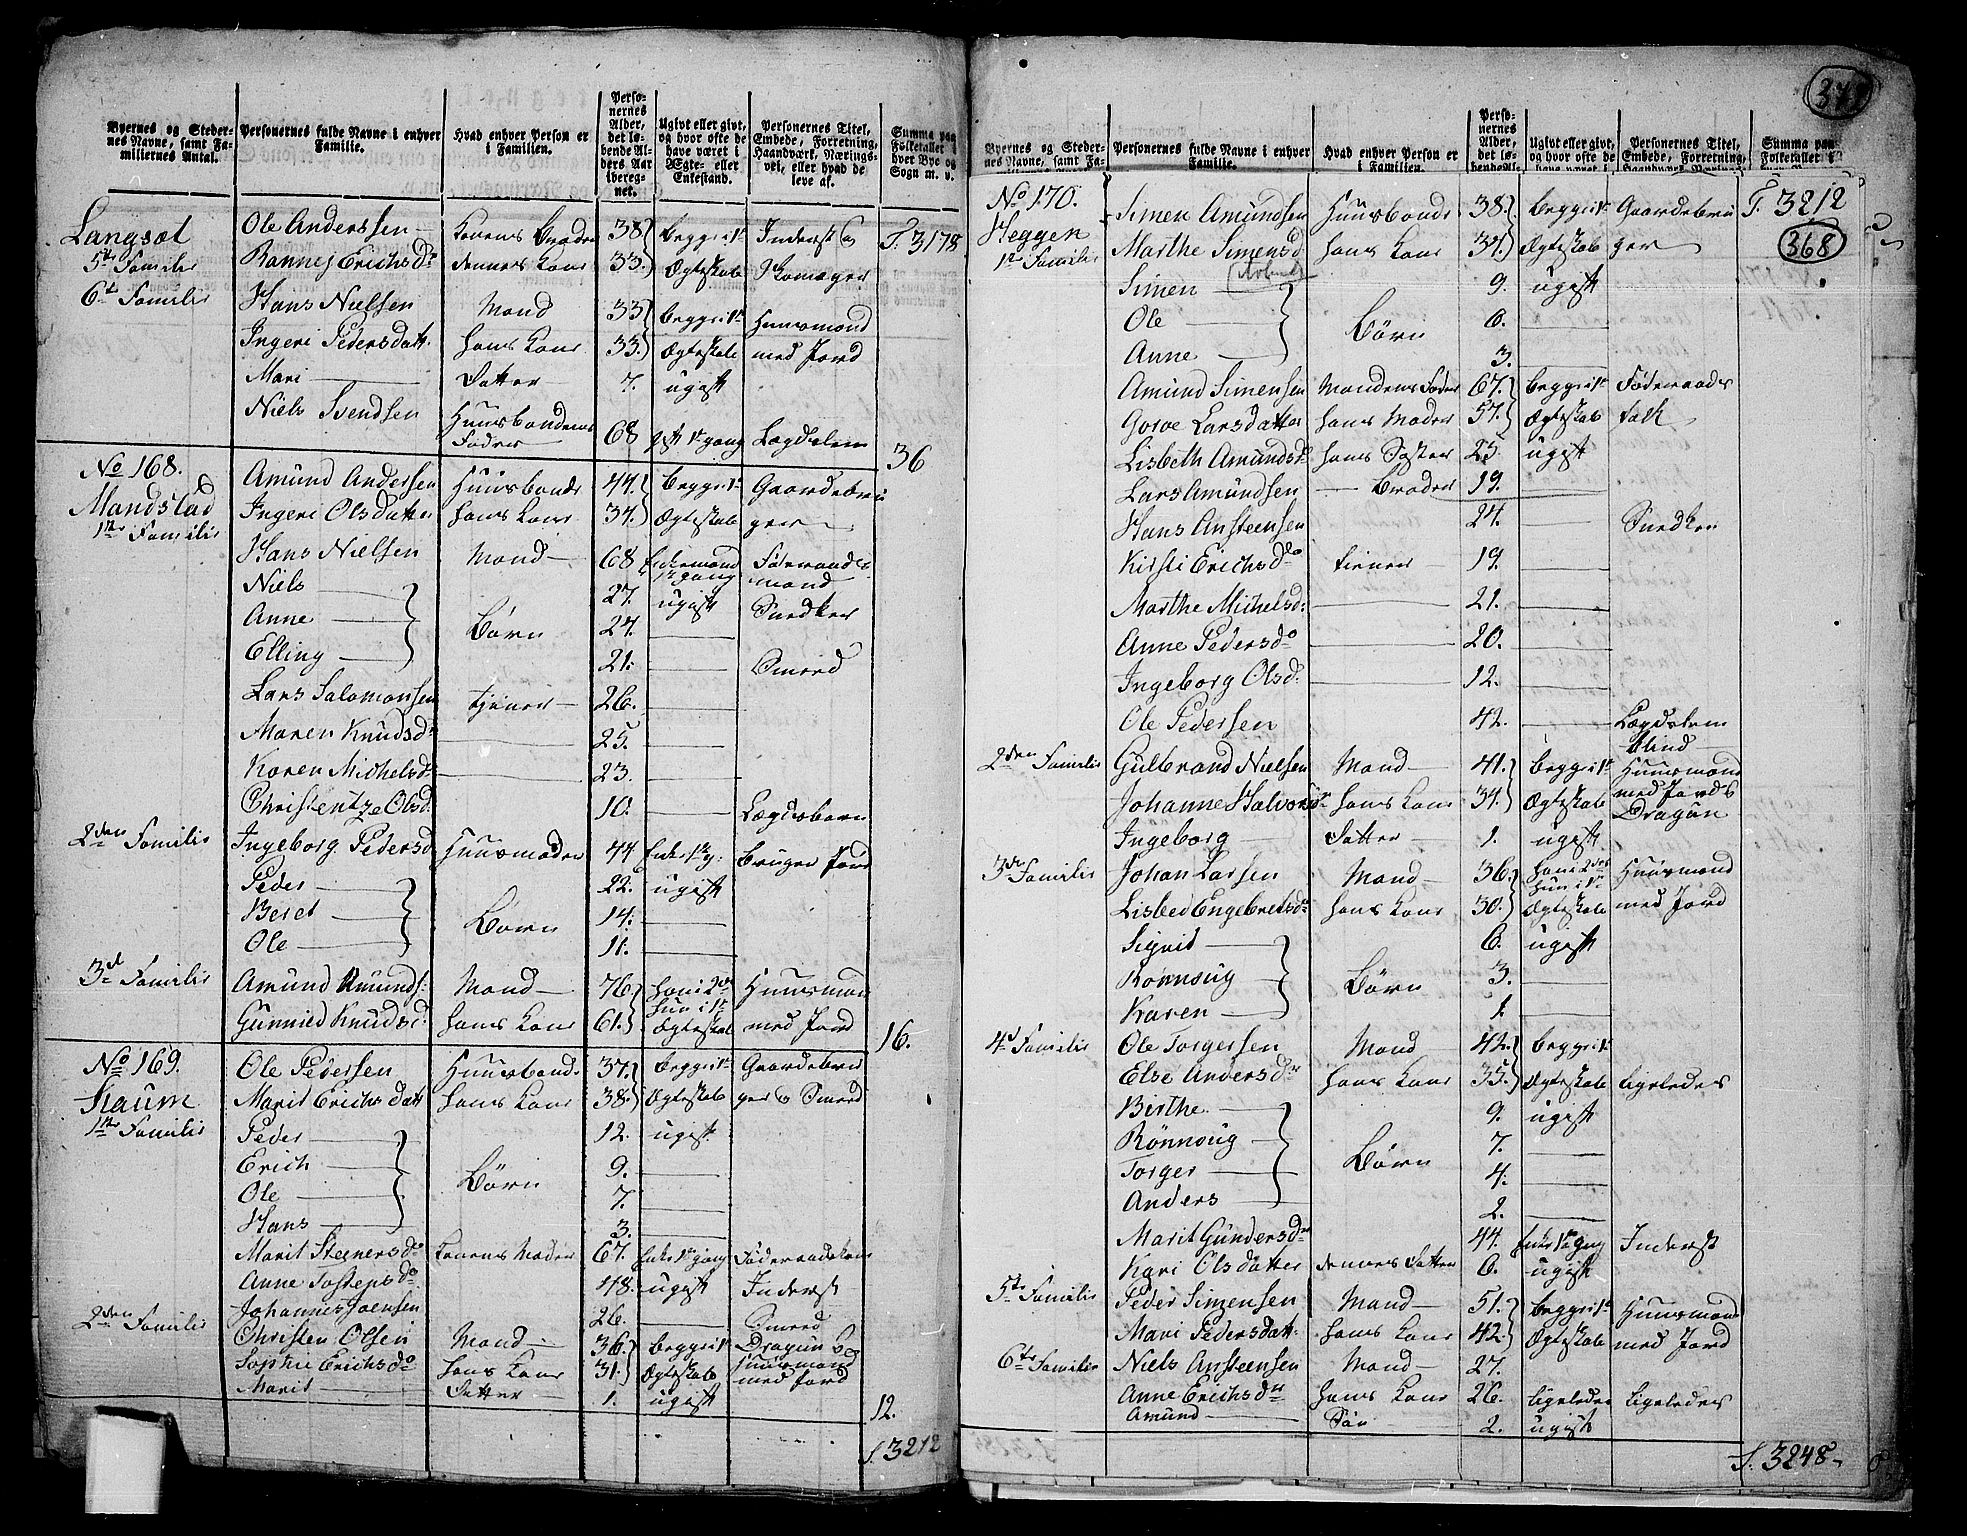 Byernes og Steder-
nes Navne, samt Fa-
miliernes Antal.
Personernes fulde Navne i enhver
Familie.
Hvad enhver Person er
i Familien.
Perso-
nernes
Alder,
det lø-
bende Al-
ders Aar
iberegnet.
Ugivt eller givt,
og hvor ofte de
have været i
Ægte- eller
Enkestand.
Personernes Titel,
Embede, Forretning,
Haandværk, Nærings-
vei, eller hvad de
leve af.
Summa paa
Folketallet i
hver Bye og
Sogn m. v.
Langsæt Ole Anderssen Konens Broder 38 begge i 1te Inderst og T. 3178
5te Familie Rannej Erichsdr dennes Kone 33 Ægteskab Skomager
6te Familie Hans Nielsen Mand 33 begge i 1te Huusmand
Ingeri Pedersdatt. hans Kone 33 Ægteskab med Jord
Mari Datter 7. ugift
Niels Svendsen Huusbondens
Fader 68 gift 1te gang Lægdslem 36
No 168. Amund Andersen Huusbonde 44 begge i 1te Gaardebru
Mandstad Ingeri Olsdatter hans Kone 34 Ægteskab ger
1te Familie Hans Nielsen Mand 68 Enkemand Føderaads
1te gang mand
Niels 27. ugift Snedker
Anne Børn 24.
Elling 21. Smed
Lars Salamonsen tjener 26.
Maren Knudsdr 25.
Karen Michelsd. 23.
Christentze Olsd. 10. Lægdsbarn
2den Familie Ingeborg Pedersd Huusmoder 44 Enke 1te g. bruger Jord
Peder 22. ugift
Beret Børn 14.
Ole 11.
3d Familie Amund Amunds: Mand 76. han i 2det Huusmand
hun i 1te
Gunnild Knudsd. hans Kone 61. Ægteskab med Jord 16.
No 169. Ole Pedersen Huusbond. 37. begge i 1te Gaardebru
Haum Marit Erichsdatt hans Kone 38. Ægteskab ger og Smed
1te Familie Peder 12. ugift
Erich Børn 9.
Ole 7.
Hans 3.
Marit Steenersdr Konens Moder 67. Enke 1te gang Føderaadslem
Anne Tostensdr 48. ugift Inderst
Johannes Joensen 26. Smed
2den Familie Christen Olsen Mand 36. begge i 1te Dragun og
Sophie Erichsdr hans Kone 31. Ægteskab Huusmand
med Jord
Marit Datter 1. ugift 12.
S. 3212
371
Byernes og Steder-
nes Navne, samt Fa-
Personernes fulde Navne i enhver
Familie.
Hvad enhver Person er
i Familien.
Perso-
nernes
Alder,
det lø-
bende Al-
Ugivt eller givt,
og hvor ofte de
have været i
Personernes Titel,
Embede, Forretning,
Haandværk, Nærings-
Summa paa
Folketallet i
No 170. Simen Amundsen Huusbonde 38. begge i 1te Gaardebru T. 3212
Heggen Marthe Simensd hans Kone 34. Ægteskab ger 368
1te Familie Simen 9. ugift
Ole Børn 6.
Anne 3.
Amund Simensen Mandens Fader 67. begge i 1te Føderaads
Gorve Larsdatter hans Moder 57. Ægteskab folk
Lisbeth Amundsd hans Søster 25. ugift
Lars Amundsen Broder 19.
Hans Ansteensen 24. Snedker
Kirsti Erichsdr tiener 19.
Marthe Michelsd: 21.
Anne Pedersdr 20.
Ingeborg Olsd. 12.
Ole Pedersen 42. Lægdslem
blind
2den Familie Gulbrand Nielsen Mand 41. begge i 1te Huusmand
Johanne Halvorsdr hans Kone 34. Ægteskab med Jord og
Dragun
Ingeborg Datter 1. ugift
3die Familie Johan Larsen Mand 36. han i 2det Huusmand
hun i 1te
Lisbed Engebretsdr hans Kone 30. Ægteskab med Jord
Sigrid 6. ugift
Rønnoug Børn 3.
Karen 1.
4d Familie Ole Torgersen Mand 42. begge i 1te
Else Andersdr hans Kone 35. Ægteskab ligeledes
Birthe 9. ugift
Rønnoug Børn 7.
Torger 4.
Anders 2.
Marit Gundersdr 44. Enke 1te gang Inderst
Kari Olsdatter dennes Datter 6. ugift
5te Familie Peder Simensen Mand 51. begge i 1te Huusmand
Mari Pedersdatt. hans Kone 42. Ægteskab med Jord
6te Familie Niels Ansteensen Mand 27.
Anne Erichsdr hans Kone 26. ligeledes ligeledes
Amund Søn 2. ugift
S. 3248